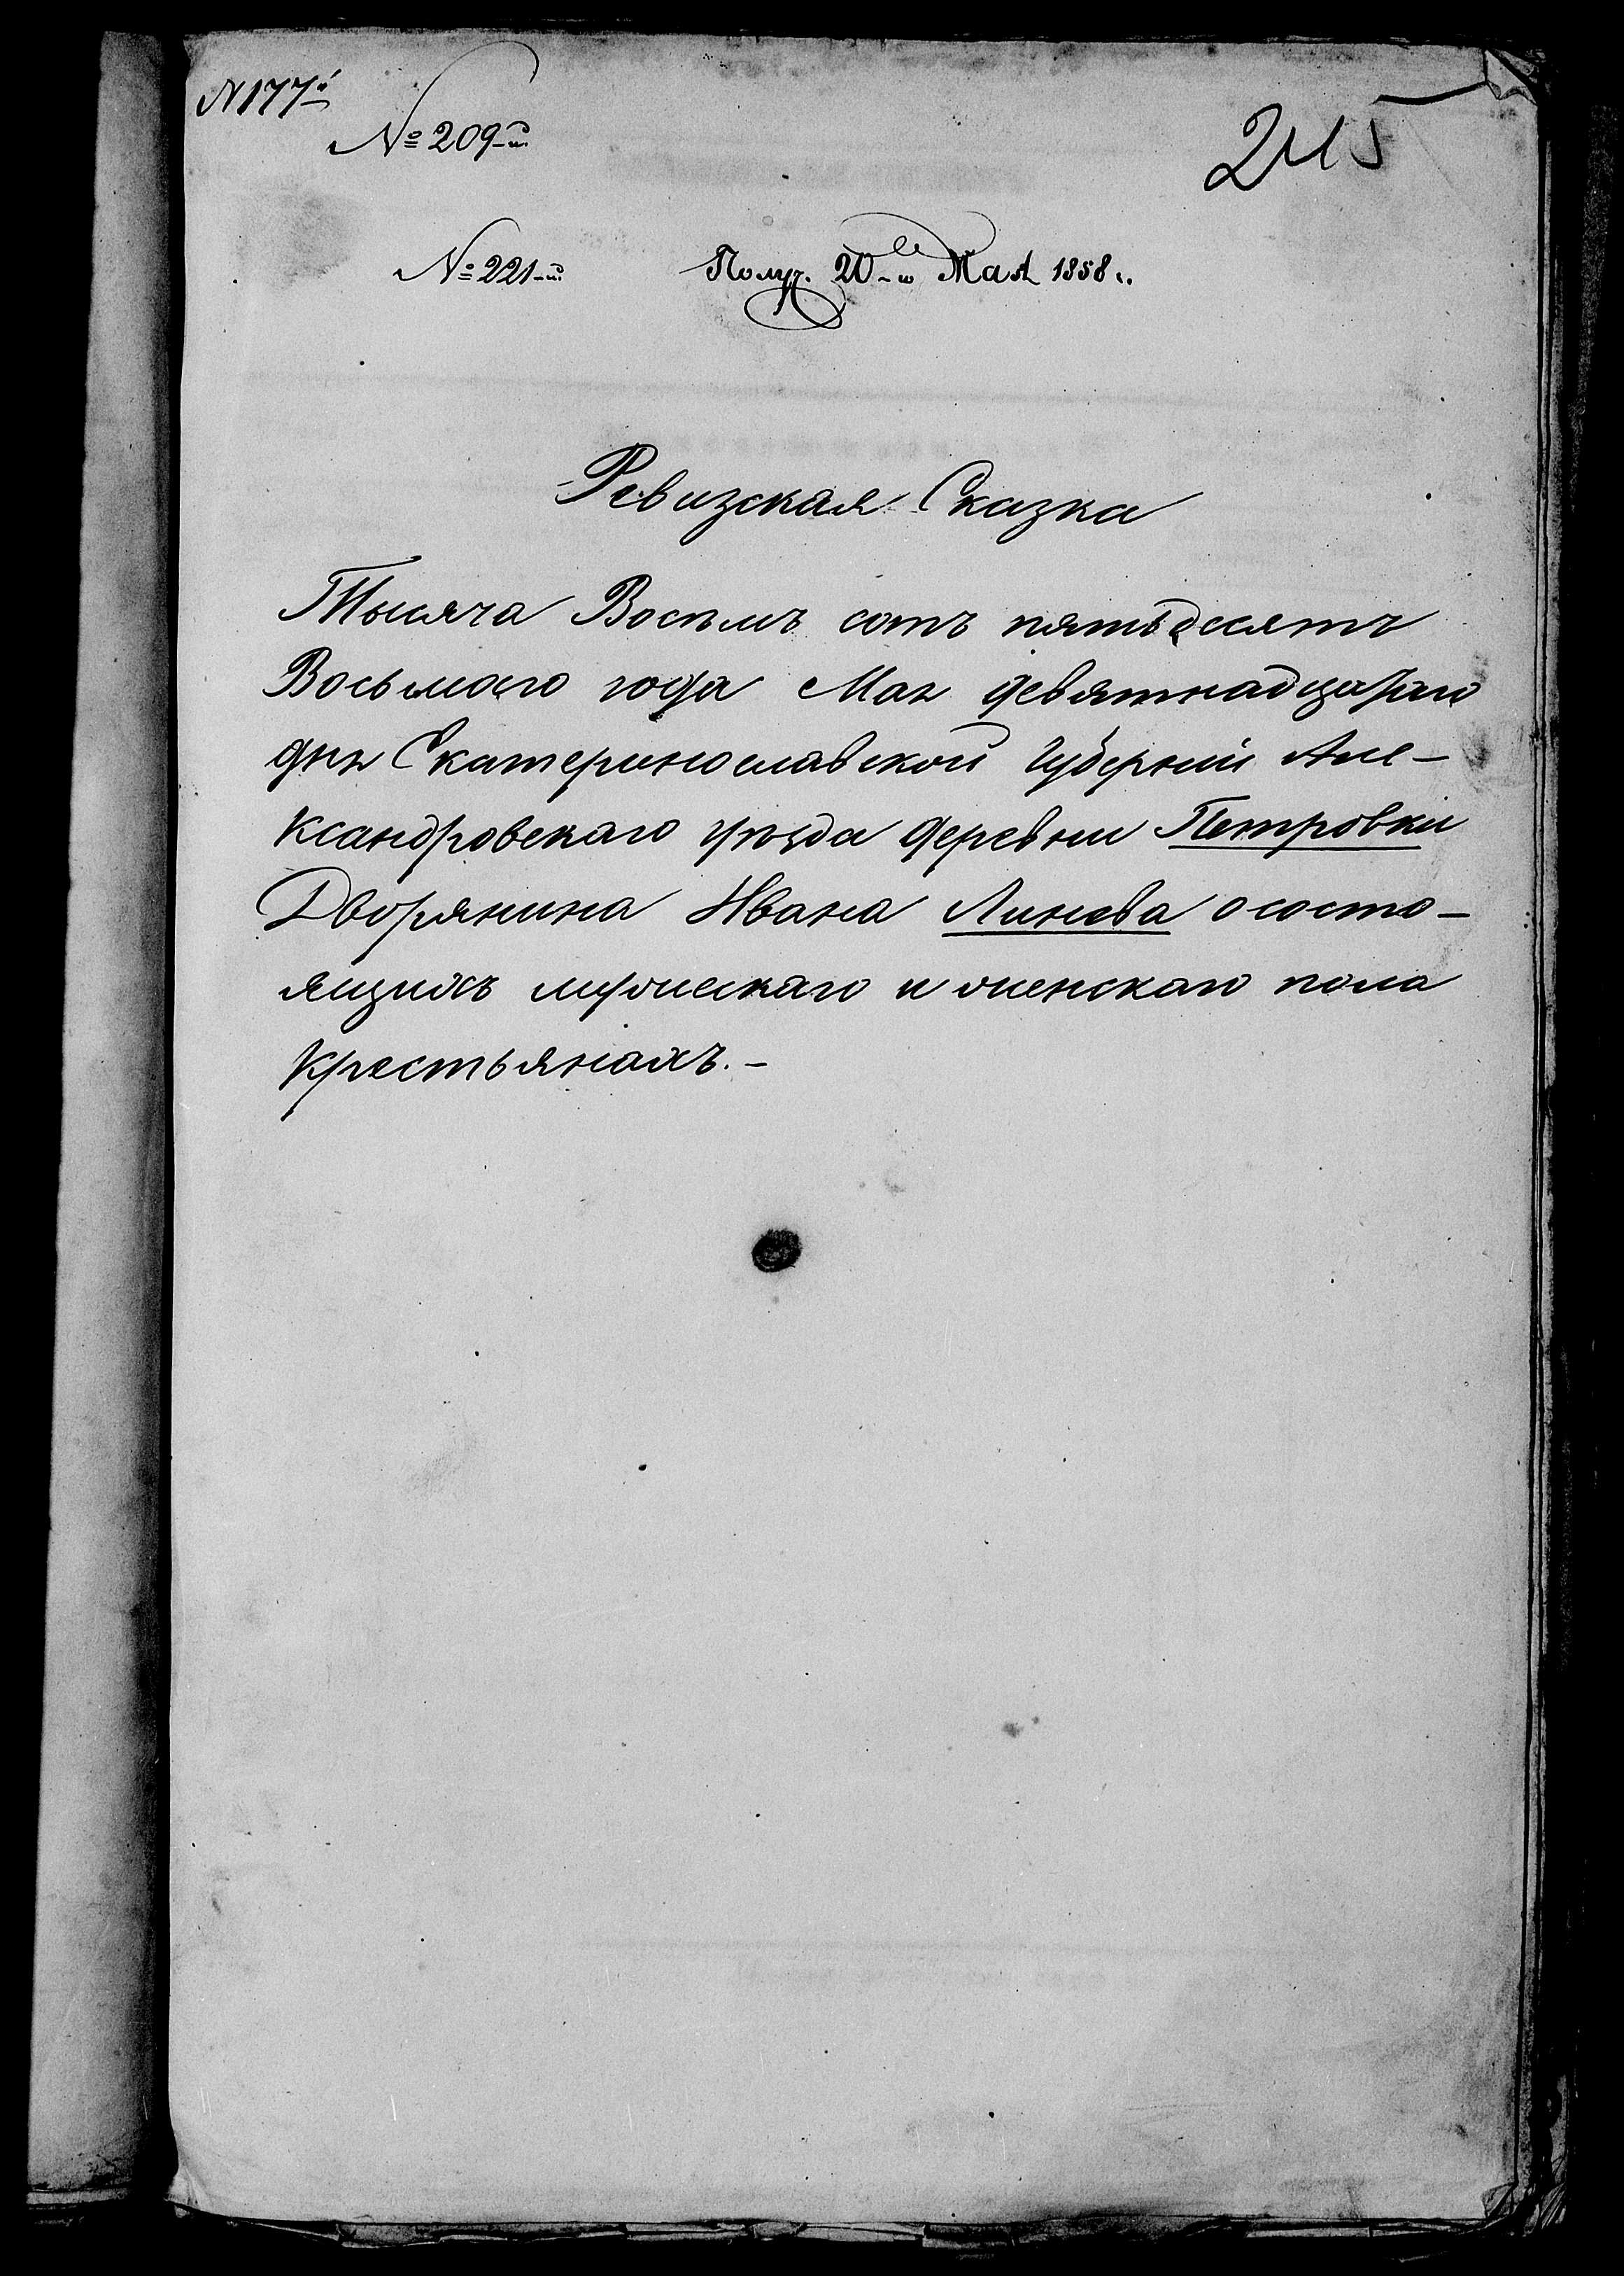 N 177й
№ 209-й
245
№ 221-й Получ. 20-го Мая 1858 г.
Ревизская Сказка
Тысяча Восемъ сотъ пятьдесятъ
Восьмого года Мая девятнадцатаго
дня Екатеринославской Губерніи Але-
ксандровскаго уѣзда деревни Петровки
Дворянина Ивана Линева о состо-
ящихъ мужескаго и женскаго пола
Крестьянахъ.-